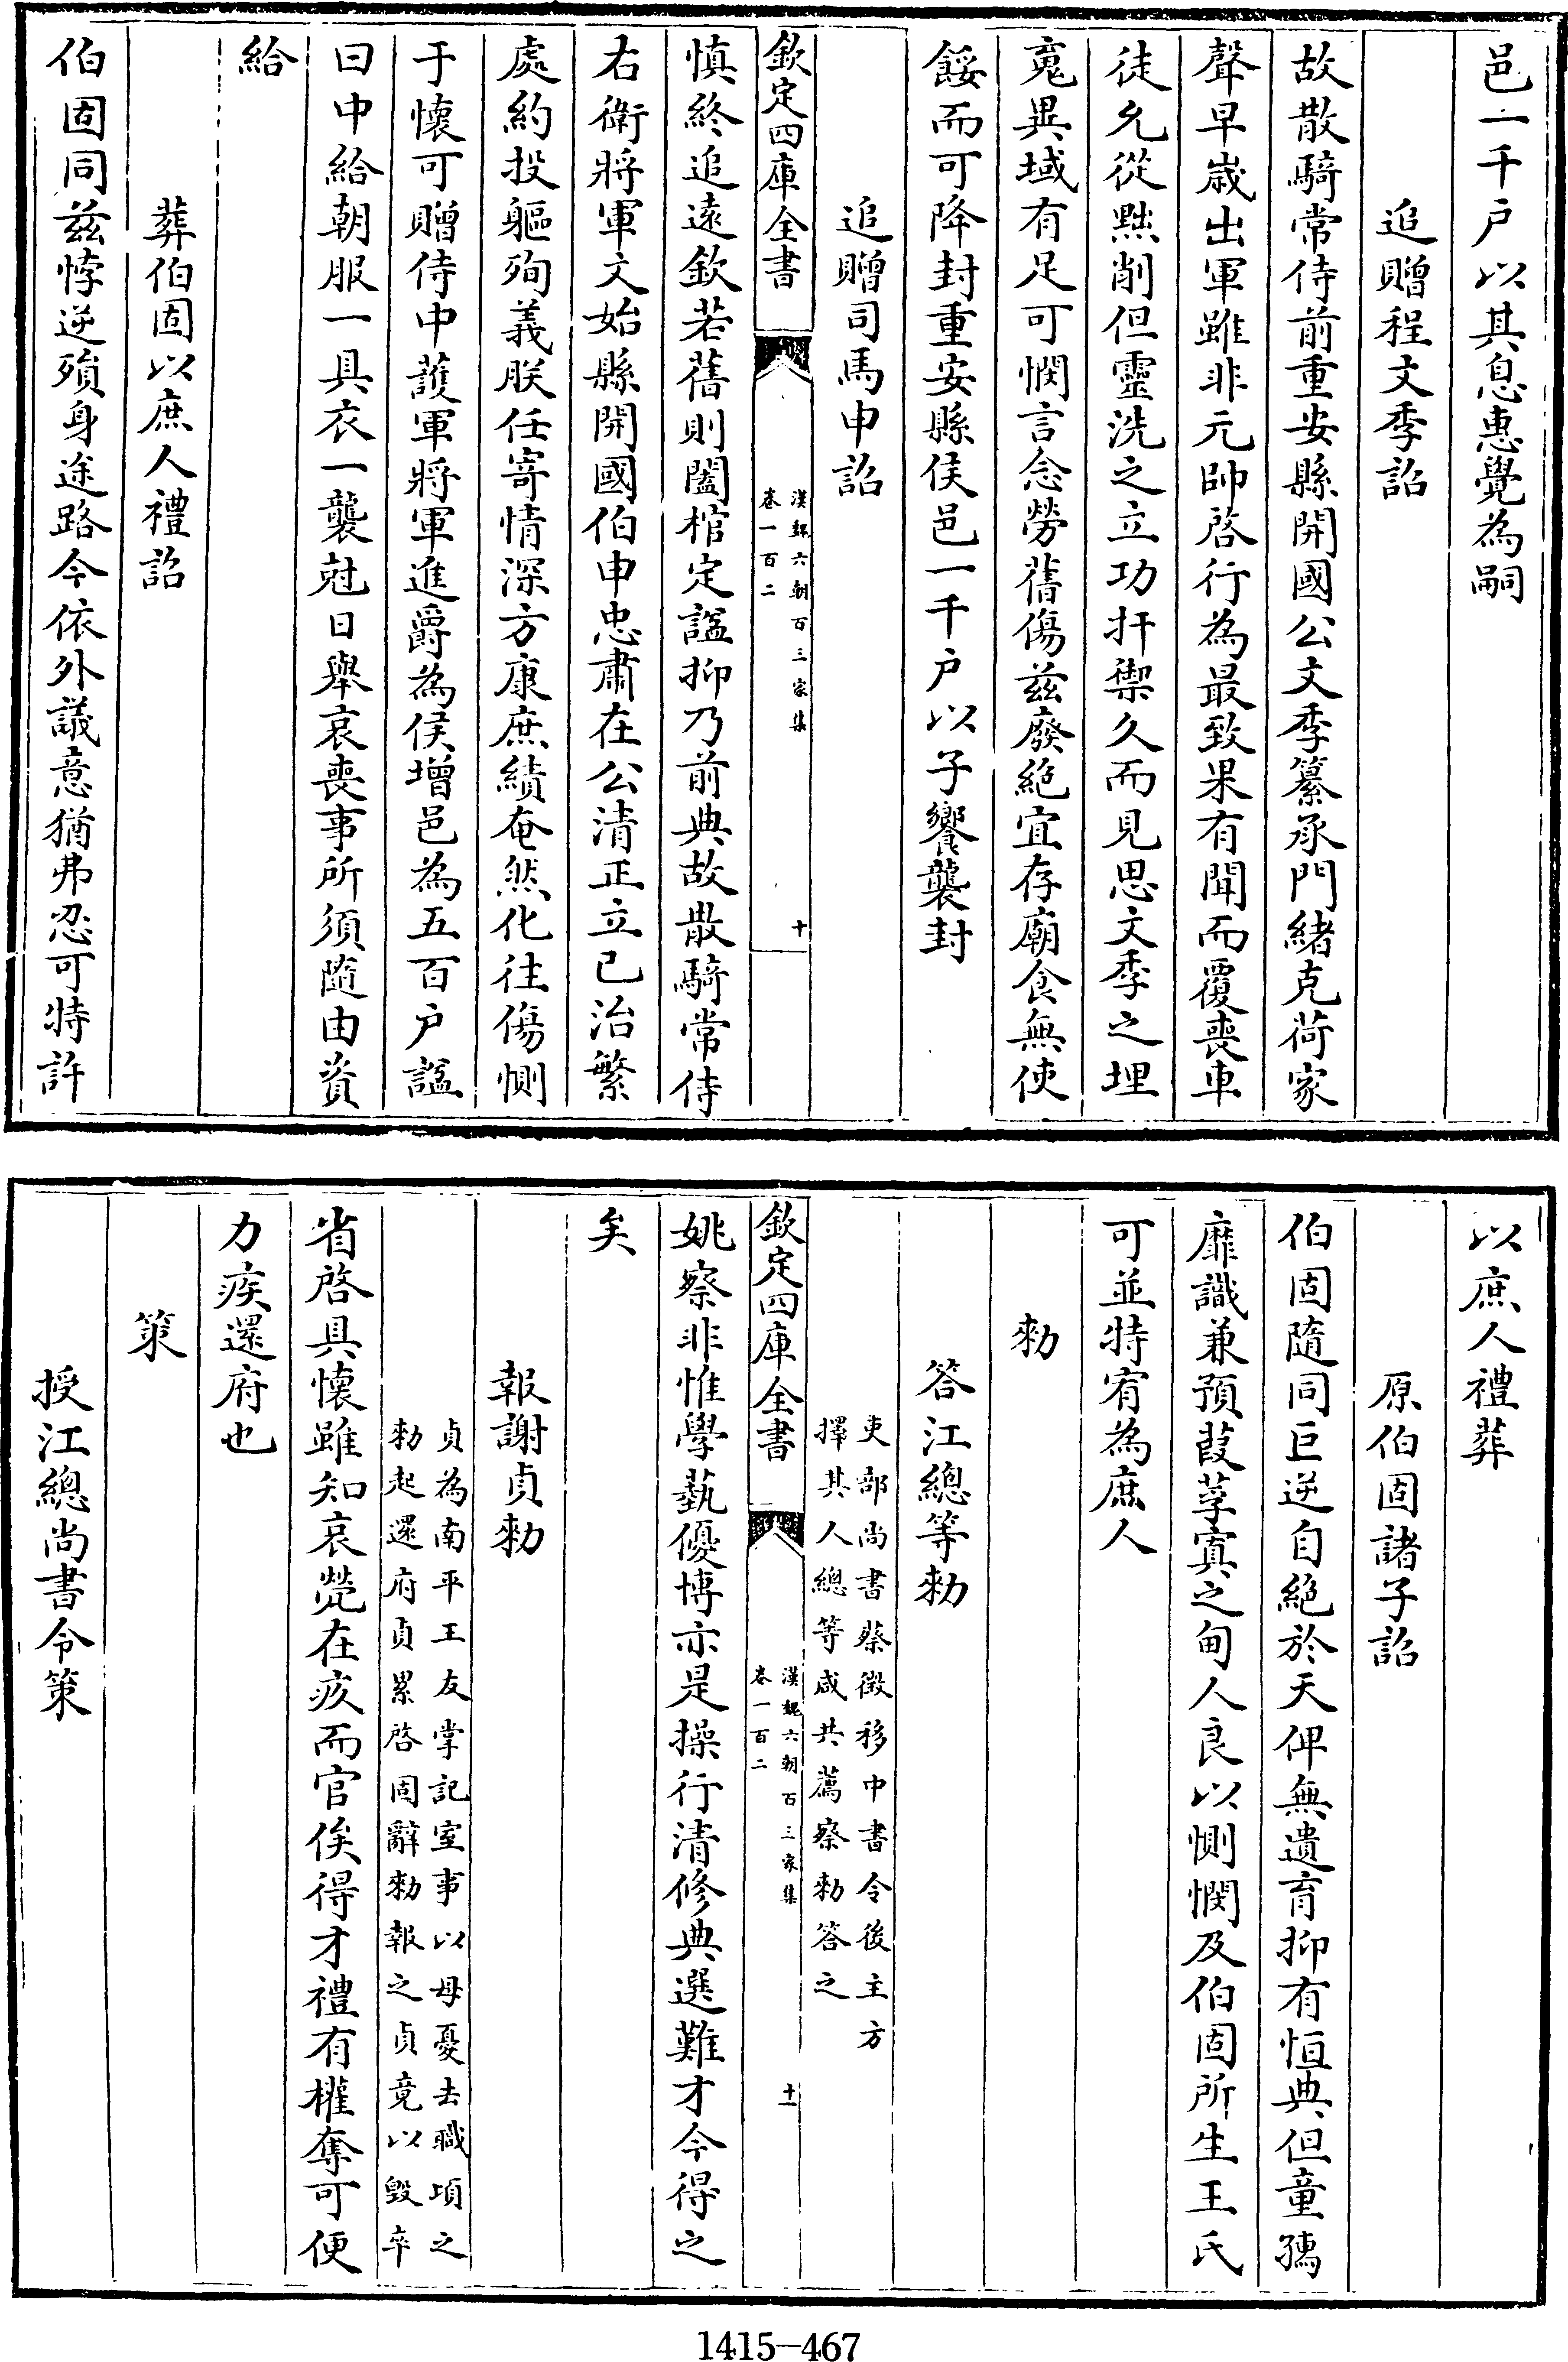 邑一千户以其息惠覺為嗣
追贈程文季詔
故散騎常侍前重安縣開國公文季纂承門緒克荷家
聲早嵗出軍雖非元帥啓行為最致果有聞而覆喪車
徒允從黜削但靈洗之立功扞禦久而見思文季之埋
䰟異域有足可憫言念勞舊傷兹廢絶宜存廟食無使
餒而可降封重安縣侯邑一千户以子饗襲封
追贈司馬申詔
欽定四庫全書
漢魏六朝百三家集
卷一百二
十
慎終追遠欽若舊則闔棺定諡抑乃前典故散騎常侍
右衛將軍文始縣開國伯申忠肅在公清正立已治繁
處約投軀殉義朕任寄情深方康庶績奄然化往傷惻
于懷可贈侍中䕶軍將軍進爵為侯增邑為五百户諡
曰中給朝服一具衣一襲尅日舉哀喪事所須隨由資
給
葬伯固以庶人禮詔
伯固同兹悖逆殞身途路今依外議意猶弗忍可特許
以庶人禮葬
原伯固諸子詔
伯固隨同巨逆自絶於天俾無遺育抑有恒典但童孺
靡識兼預葭莩寘之甸人良以惻憫及伯固所生王氏
可並特宥為庶人
勅
答江總等勅
吏部尚書蔡徴移中書令後主方
擇其人總等咸共薦察勅答之
欽定四庫全書
漢魏六朝百三家集
卷一百二
十一
姚察非惟學藝優博亦是操行清修典選難才今得之
矣
報謝貞勅
貞為南平王友掌記室事以母憂去職項之
勅起還府貞累啓固辭勅報之貞竟以毁卒
省啓具懷雖知哀煢在疚而官俟得才禮有權奪可便
力疾還府也
策
授江總尚書令策
1415-467